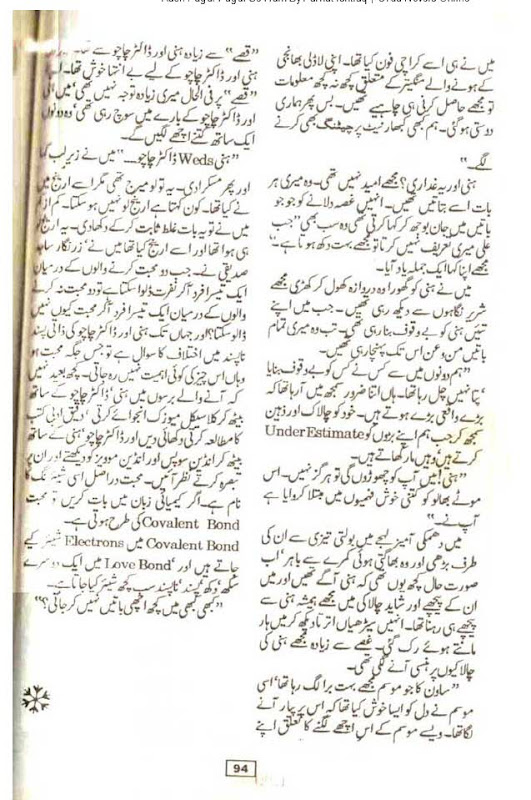 میں نے ہی اسے کراچی فون کیا تھا۔ اپنی لاڈلی بھانجی
کے ہونے والے منگیتر کے متعلق کچھ نہ کچھ معلومات
تو مجھے حاصل کرنی ہی چاہیے تھیں۔ بس پھر ہماری
دوستی ہو گئی۔ ہم کبھی کبھار نیٹ پر چیٹنگ بھی کرنے
لگے۔“
ہنی اور یہ غداری؟ مجھے امید نہیں تھی۔ وہ میری ہر
بات اسے بتاتی تھیں۔ انہیں غصہ دلانے کو جو جو
باتیں میں جان بوجھ کر کہا کرتی تھی وہ سب بھی ”جب
علی میری تعریف نہیں کرتا تو مجھے بہت دکھ ہوتا ہے۔“
مجھے اپنا کہا ایک جملہ یاد آیا۔
میں نے ہنی کو گھورا وہ دروازہ کھول کر کھڑی مجھے
شریر نگاہوں سے دیکھ رہی تھیں۔ جب میں اپنے
تئیں ہنی کو بے وقوف بنا رہی تھی۔ تب وہ میری تمام
باتیں من و عن اس تک پہنچا رہی تھیں۔
”ہم دونوں میں سے کس نے کس کو بے وقوف بنایا
پتا نہیں چل رہا تھا۔ ہاں اتنا ضرور سمجھ میں آ رہا تھا کہ
بڑے واقعی بڑے ہوتے ہیں۔ خود کو چالاک اور ذہین
سمجھ کر جب ہم اپنے بڑوں کو UnderEstimate
کرتے ہیں وہیں مار کھاتے ہیں۔
”ہنی! میں آپ کو چھوڑوں گی تو ہرگز نہیں۔ اس
موٹے بھالو کو کتنی خوش فہمیوں میں مبتلا کروایا ہے
آپ نے۔“
میں دھمکی آمیز لہجے میں بولتی تیزی سے ان کی
طرف بڑھی اور وہ بھاگتی ہوئی کمرے سے باہر۔ اب
صورت حال کچھ یوں تھی کہ ہنی آگے تھیں اور میں
ان کے پیچھے اور شاید چالاکی میں مجھے ہمیشہ ہنی سے
پیچھے ہی رہنا تھا۔ انہیں سیڑھیاں اترتا دیکھ کر میں ہار
مانتے ہوئے رک گئی۔ غصے سے زیادہ مجھے ہنی کی
چالاکیوں پر ہنسی آنے لگی تھی۔
”ساون کا جو موسم مجھے بہت برا لگ رہا تھا‘ اسی
موسم نے دل کو ایسا خوش کیا تھا کہ اس پر پیار آنے
لگا تھا۔ ویسے موسم کے اس اچھے لگنے کا تعلق اپنے
”قصے“ سے زیادہ ہنی اور ڈاکٹر چاچو سے تھا۔
ہنی اور ڈاکٹر چاچو کے لیے بے انتہا خوش تھا۔
”قصے“ پر فی الحال میری زیادہ توجہ نہیں تھی‘ میں ہنی
اور ڈاکٹر چاچو کے بارے میں سوچ رہی تھی‘ وہ دونوں
ایک ساتھ کتنے اچھے لگیں گے۔
”ہنی Weds ڈاکٹر چاچو۔۔“ میں نے زیر لب کہا
اور پھر مسکرا دی۔ یہ تو لو میرج تھی مگر اسے ارینج میں
نے کیا تھا۔ کون کہتا ہے ارینج لو نہیں ہو سکتا۔ کم از کم
میں نے تو یہ بات غلط ثابت کر کے دکھا دی۔ یہ ارینج لو
ہی ہوا تھا اور اسے ارینج کیا تھا میں نے ’زرنگار ساجد
صدیقی نے۔ جب دو محبت کرنے والوں کے درمیان
ایک تیسرا فرد آ کر نفرت ڈلوا سکتا ہے تو دو محبت نہ کرنے
والوں کے درمیان ایک تیسرا فرد آ کر محبت کیوں نہیں
ڈلوا سکتا؟ اور جہاں تک ہنی اور ڈاکٹر چاچو کی ذاتی پسند
ناپسند میں اختلاف کا سوال ہے تو جس جگہ محبت ہو
وہاں اس چیز کی کوئی اہمیت نہیں رہ جاتی۔ کچھ بعید نہیں
کہ آنے والے برسوں میں ہنی‘ ڈاکٹر چاچو کے ساتھ
بیٹھ کر کلاسیکل میوزک انجوائے کرتی ‘ دقیق ادبی کتب
کا مطالعہ کرتی دکھائی دیں اور ڈاکٹر چاچو‘ ہنی کے ساتھ
بیٹھ کر انڈین سوپس اور انڈین موویز کو دیکھتے اور ان پر
تبصرہ کرتے نظر آئیں۔ محبت دراصل اسی شیئرنگ کا
نام ہے۔ اگر کیمیائی زبان میں بات کریں تو محبت
Covalent Bond کی طرح ہوتی ہے۔
Covalent Bond میں Electrons شیئر کیے
جاتے ہیں اور ’Love Bond‘ میں ایک دوسرے کے
سکھ‘ دکھ‘ پسند‘ ناپسند سب کچھ شیئر کیا جاتا ہے۔
”کبھی کبھی میں کچھ اچھی باتیں نہیں کر جاتی؟“
94